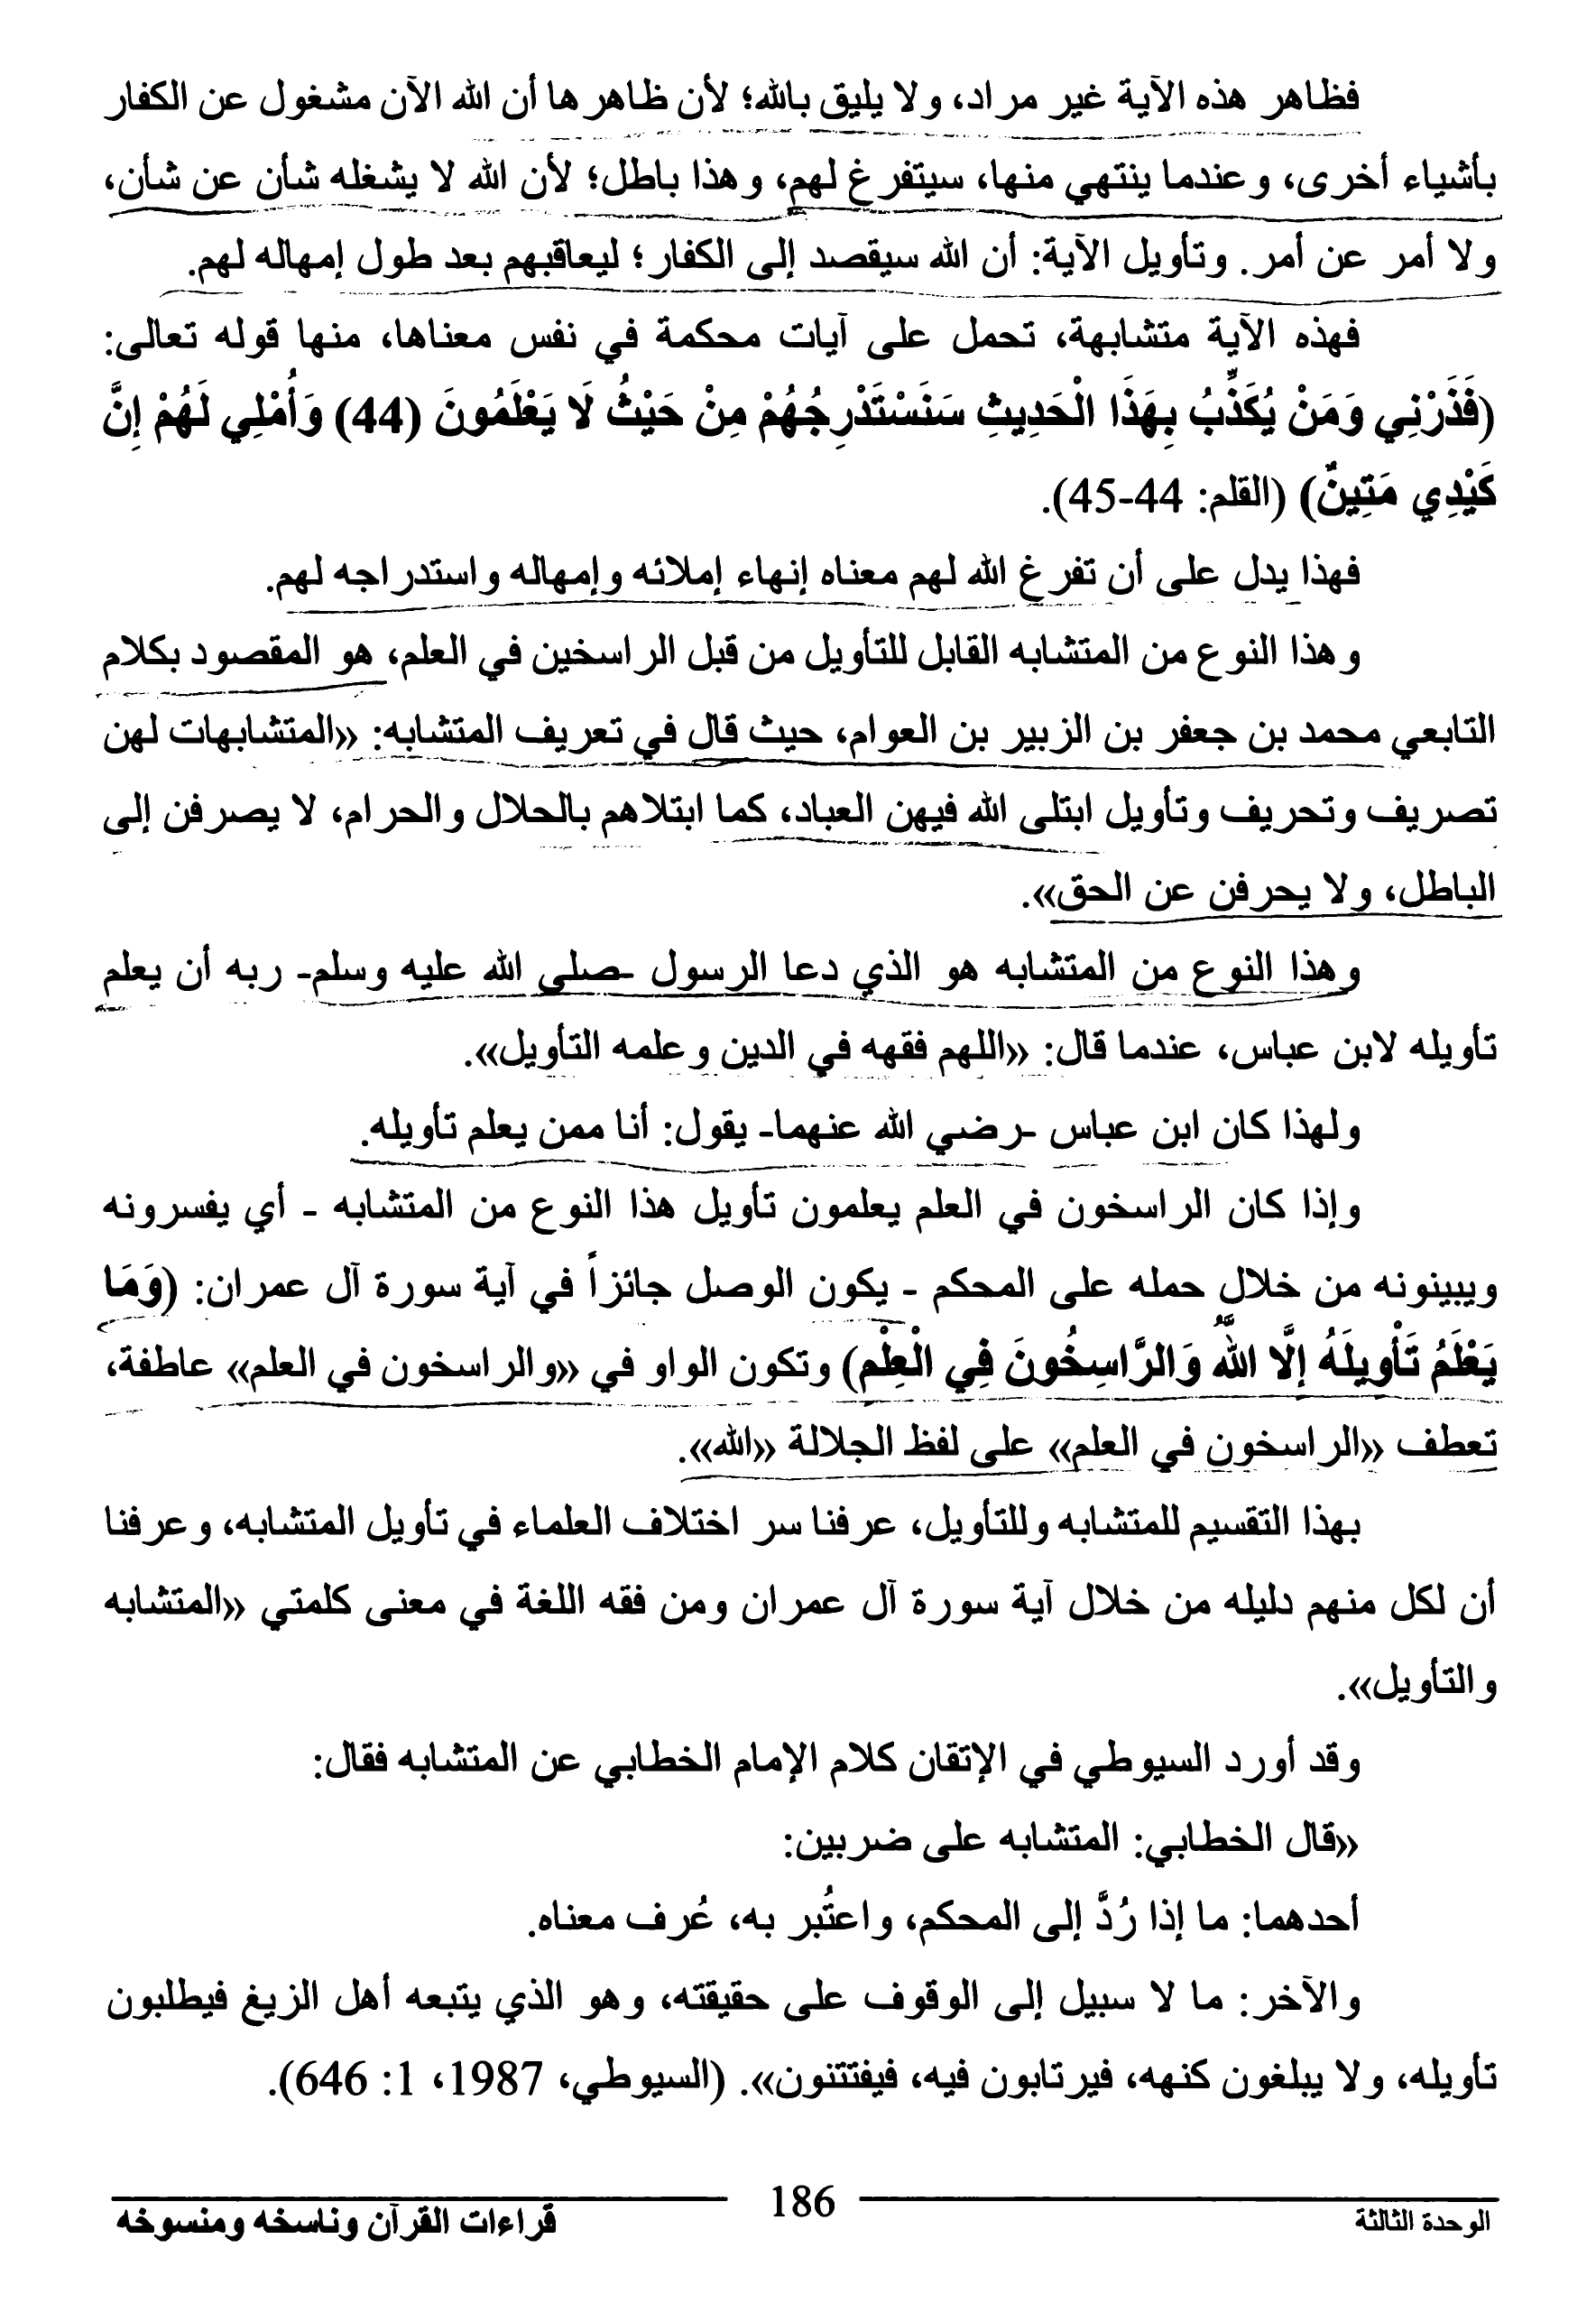 فظاهر هذه الآية غير مراد، ولا يليق بالله؛ لأن ظاهرها أن الله الآن مشغول عن الكفار
بأشياء أخرى، وعندما ينتهي منها، سيتفرغ لهم، وهذا باطل؛ لأن الله لا يشغله شأن عن شأن،
ولا أمر عن أمر. وتأويل الآية: أن الله سيقصد إلى الكفار؛ ليعاقبهم بعد طول إمهاله لهم.
فهذه الآية متشابهة، تحمل على آيات محكمة في نفس معناها، منها قوله تعالى:
(فَذَرْنِي وَمَنْ يُكَذِّبُ بِهَذَا الْحَدِيثِ سَنَسْتَدْرِجُهُمْ مِنْ حَيْثُ لَا يَعْلَمُونَ (44) وَأُمْلِي لَهُمْ إِنَّ
كَيْدِي مَتِينٌ) (القلم: 44-45).
فهذا يدل على أن تفرغ الله لهم معناه إنهاء إملائه وإمهاله واستدراجه لهم.
وهذا النوع من المتشابه القابل للتأويل من قبل الراسخين في العلم، هو المقصود بكلام
التابعي محمد بن جعفر بن الزبير بن العوام، حيث قال في تعريف المتشابه: «المتشابهات لهن
تصريف وتحريف وتأويل ابتلى الله فيهن العباد، كما ابتلاهم بالحلال والحرام، لا يصرفن إلى
الباطل، ولا يحرفن عن الحق».
وهذا النوع من المتشابه هو الذي دعا الرسول -صلى الله عليه وسلم- ربه أن يعلم
تأويله لابن عباس، عندما قال: «اللهم فقهه في الدين وعلمه التأويل».
ولهذا كان ابن عباس -رضي الله عنهما- يقول: أنا ممن يعلم تأويله.
وإذا كان الراسخون في العلم يعلمون تأويل هذا النوع من المتشابه - أي يفسرونه
ويبينونه من خلال حمله على المحكم - يكون الوصل جائزاً في آية سورة آل عمران: (وَمَا
يَعْلَمُ تَأْوِيلَهُ إِلَّا اللَّهُ وَالرَّاسِخُونَ فِي الْعِلْم) وتكون الواو في «والراسخون في العلم» عاطفة،
تعطف «الراسخون في العلم» على لفظ الجلالة «الله».
بهذا التقسيم للمتشابه وللتأويل، عرفنا سر اختلاف العلماء في تأويل المتشابه، وعرفنا
أن لكل منهم دليله من خلال آية سورة آل عمران ومن فقه اللغة في معنى كلمتي «المتشابه
والتأويل».
وقد أورد السيوطي في الإتقان كلام الإمام الخطابي عن المتشابه فقال:
«قال الخطابي: المتشابه على ضربين:
أحدهما: ما إذا رُدَّ إلى المحكم، واعتُبر به، عُرف معناه.
والآخر: ما لا سبيل إلى الوقوف على حقيقته، وهو الذي يتبعه أهل الزيغ فيطلبون
تأويله، ولا يبلغون كنهه، فيرتابون فيه، فيفتتنون». (السيوطي، 1987، 1: 646).
الوحدة الثالثة 186 قراءات القرآن وناسخه ومنسوخه